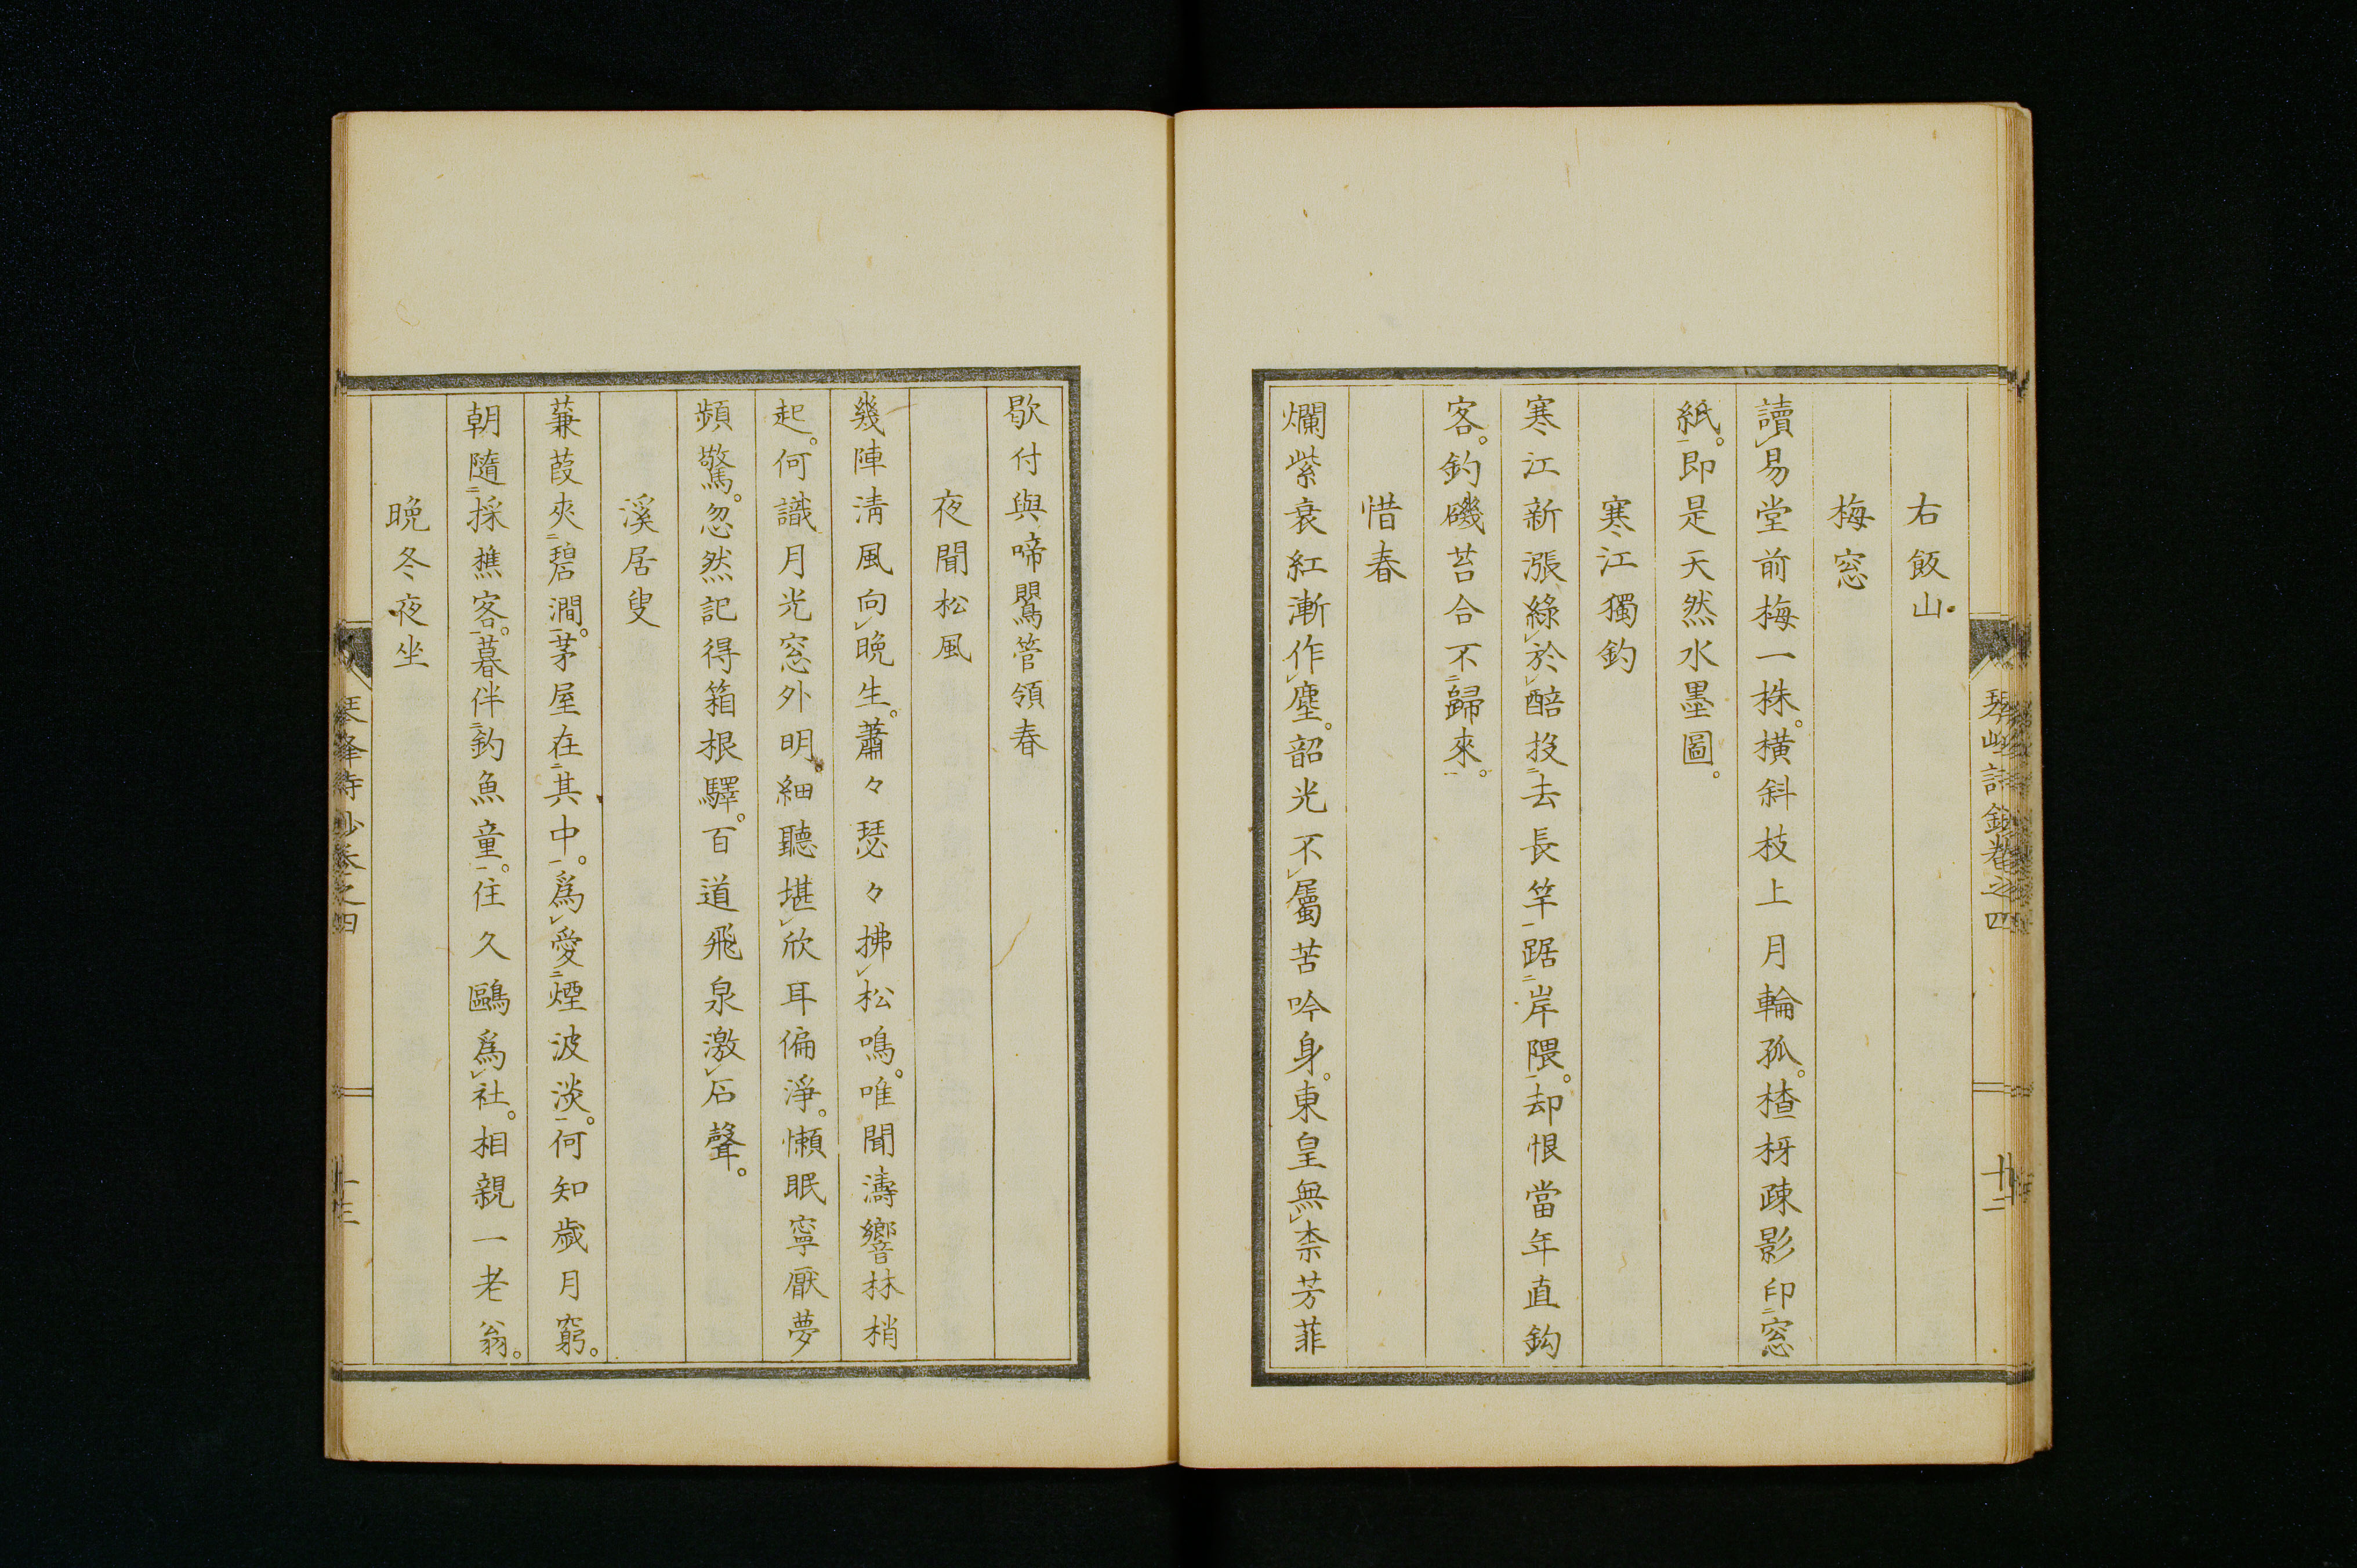 右飯山
梅窓
讀易堂前梅一株。横斜枝上月輪孤。楂枒疎影印窓
紙。即是天然水墨圖。
寒江獨釣
寒江新漲綠於醅投去長竿踞岸隈。却恨當年直鈎
客。釣磯苔合不歸來。
惜春
爛紫衰紅漸作塵。韶光不屬苦吟身。東皇無柰芳菲
琴峰詩鈔卷之四
十二
歇付與啼鸎管領春
夜聞松風
幾陣淸風向晩生。蕭々瑟々拂松鳴。唯聞濤響林梢
起。何識月光窓外明。細聽堪欣耳偏淨。懶眠寧厭夢
頻驚。忽然記得箱根驛。百道飛泉激石聲。
溪居叟
蒹葭夾碧澗。茅屋在其中。爲愛煙波淡。何知歲月窮。
朝隨採樵客。暮伴釣魚童。住久鷗爲社。相親一老翁。
晩冬夜坐
琴峰詩鈔卷之四
十三